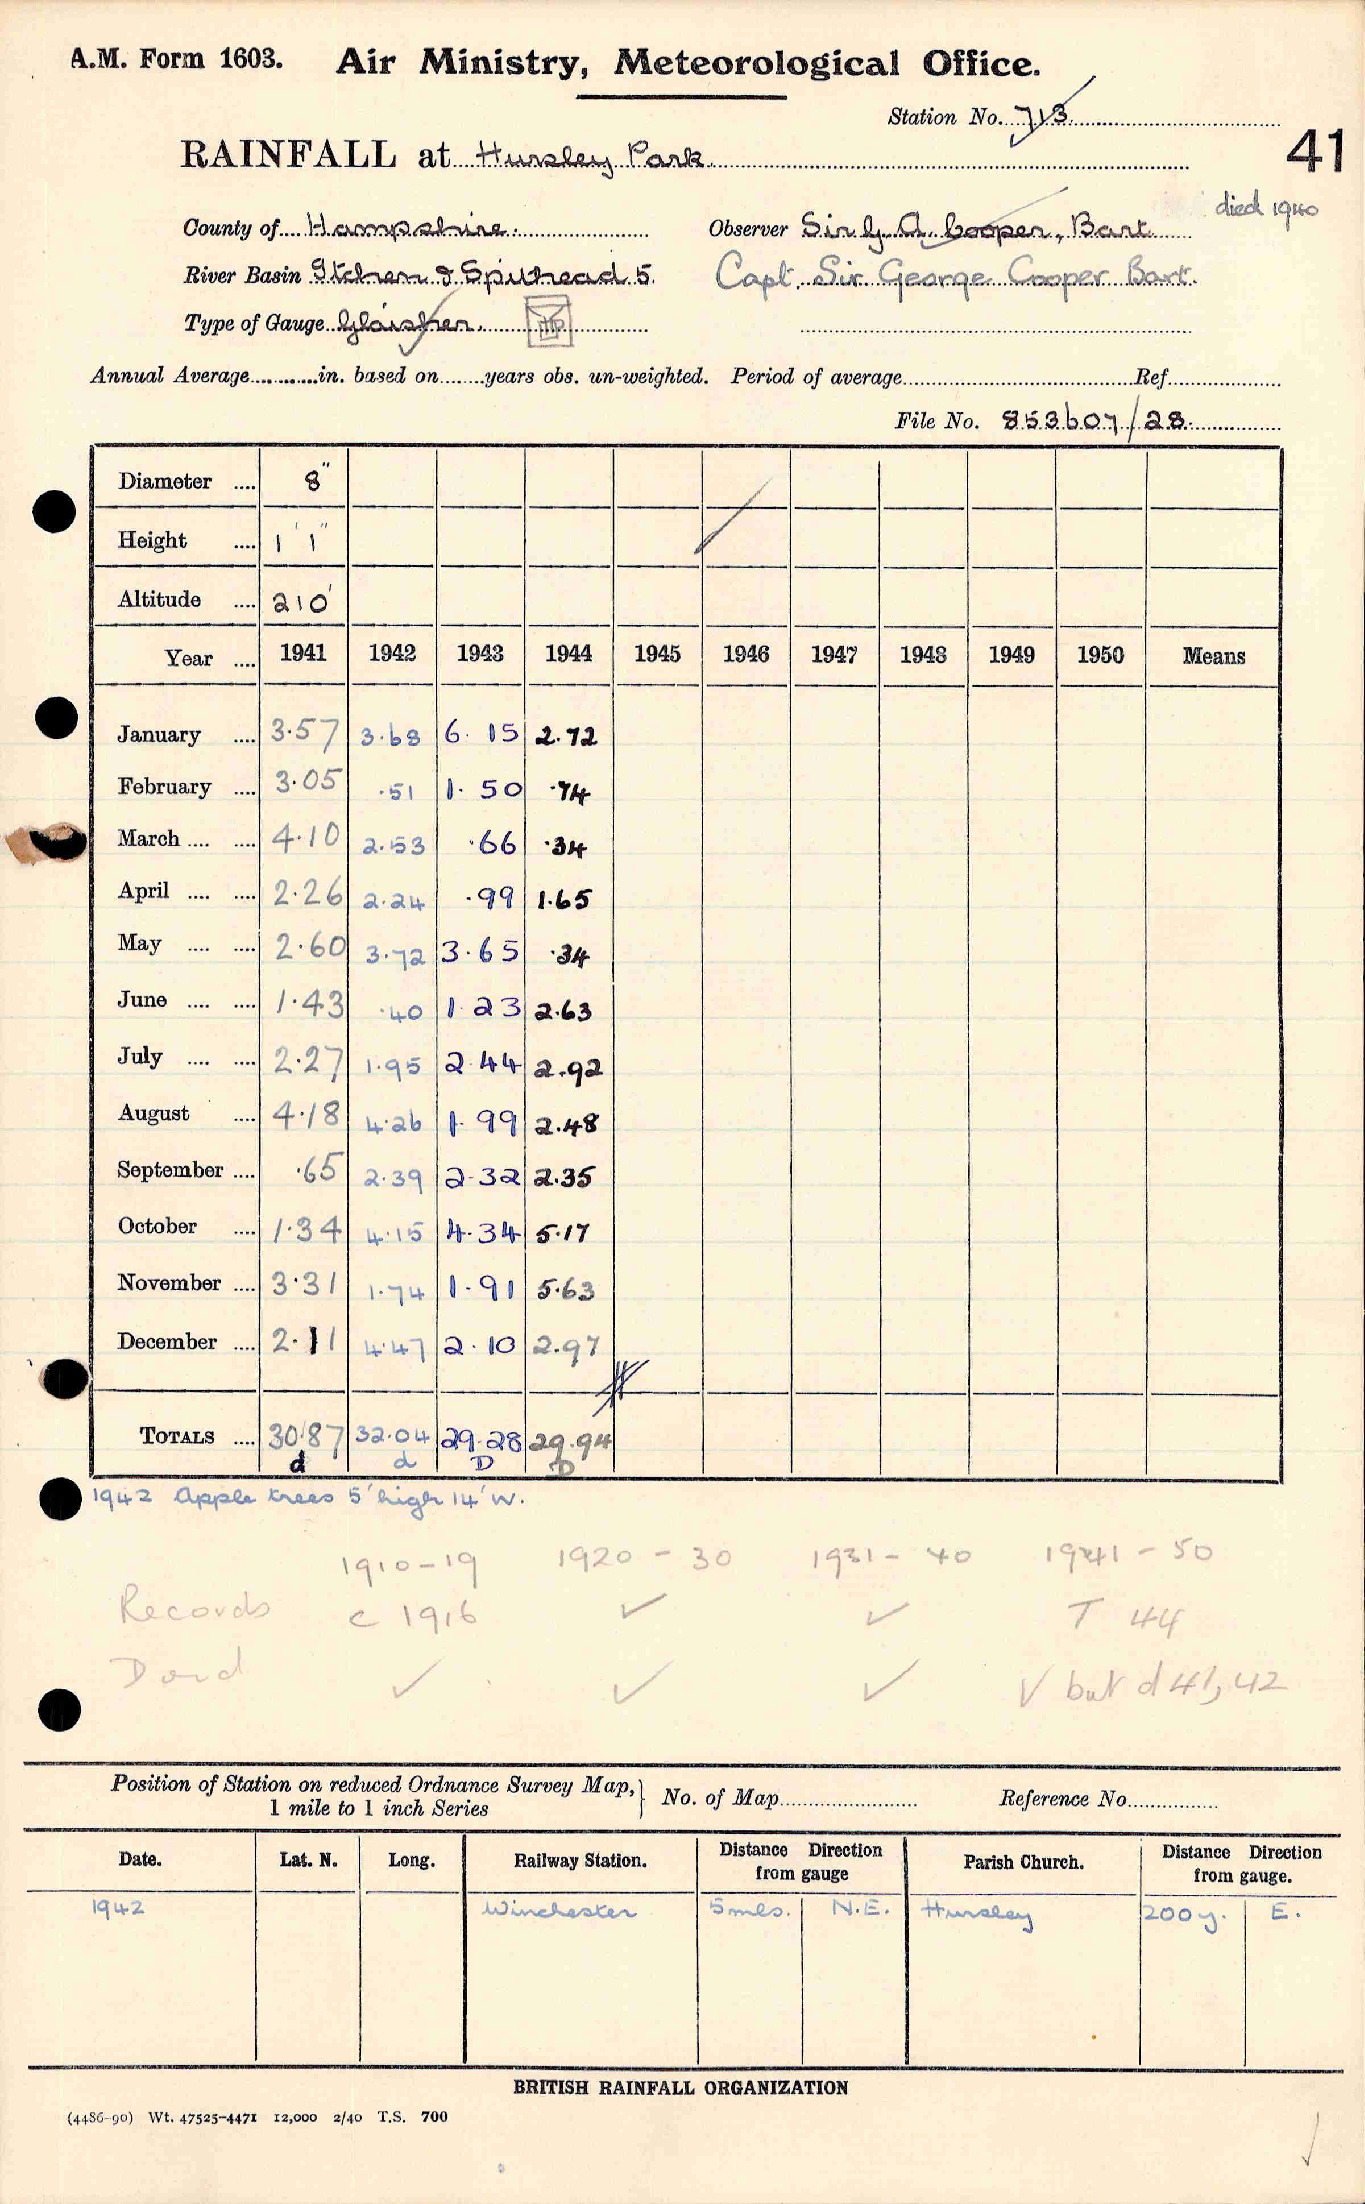 A.M. Form 1603. Air Ministry, Meteorological Office.
Station No. 713
RAINFALL at Hursley Park 41
died 1940
County of Hampshire. Observer Sir G. A. Cooper, Bart.
River Basin Itchen & Spithead 5. Capt. Sir George Cooper Bart.
Type of Gauge Glaisher.
Annual Average............in. based on........years obs. un-weighted. Period of average........ Ref........
File No. 853607/28
Diameter .... 8"
Height .... 1' 1"
Altitude .... 210'
Year .... 1941 1942 1943 1944 1945 1946 1947 1948 1949 1950 Means
January .... 3.57 3.68 6.15 2.72
February .... 3.05 .51 1.50 .74
March .... .... 4.10 2.53 .66 .34
April .... .... 2.26 2.24 .99 1.65
May .... .... 2.60 3.72 3.65 .34
June .... .... 1.43 .40 1.23 2.63
July .... .... 2.27 1.95 2.44 2.92
August .... 4.18 4.26 1.99 2.48
September .... .65 2.39 2.32 2.35
October .... 1.34 4.15 4.34 5.17
November .... 3.31 1.74 1.91 5.63
December .... 2.11 4.47 2.10 2.97
TOTALS .... 30.87 32.04 29.28 29.94
d d D D
1942 Apple trees 5' high 14' W.
1910-19 1920-30 1931-40 1941-50
Records c 1916 ✓ ✓ T 44
D and d ✓ ✓ ✓ ✓ but d 41, 42
Position of Station on reduced Ordnance Survey Map, 1 mile to 1 inch Series } No. of Map........ Reference No........
Date. Lat. N. Long. Railway Station. Distance Direction from gauge Parish Church. Distance Direction from gauge.
1942 Winchester 5 mls. N.E. Hursley 200 y. E.
BRITISH RAINFALL ORGANIZATION
(4486-90) Wt. 47525-4471 12,000 2/40 T.S. 700